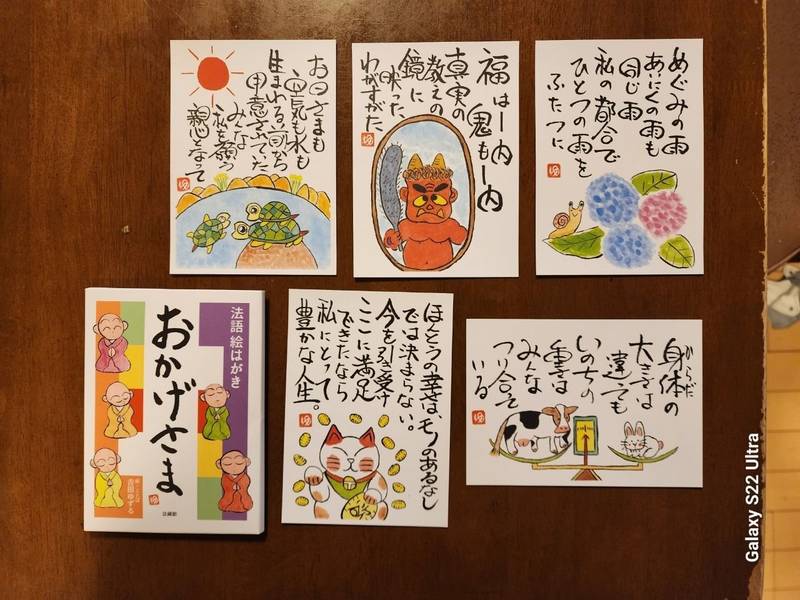 お日さまも
空気も水も
生まれる前から
用意されていた
みんな
私を願う
親心となって
福はー内
鬼もー内
真実の
教えの
鏡に
映った
わがすがた
めぐみの雨
あいにくの雨も
同じ雨
私の都合で
ひとつの雨を
ふたつに
法語 絵はがき
おかげさま
吉田ゆずる
法藏館
ほんとうの幸せは、モノのあるなし
では決まらない。
今を引き受け
ここに満足
できたなら
私にとって
豊かな人生。
からだ
身体の
大きさは
違っても
いのちの
重さは
みんな
つり合って
いる
Galaxy S22 Ultra